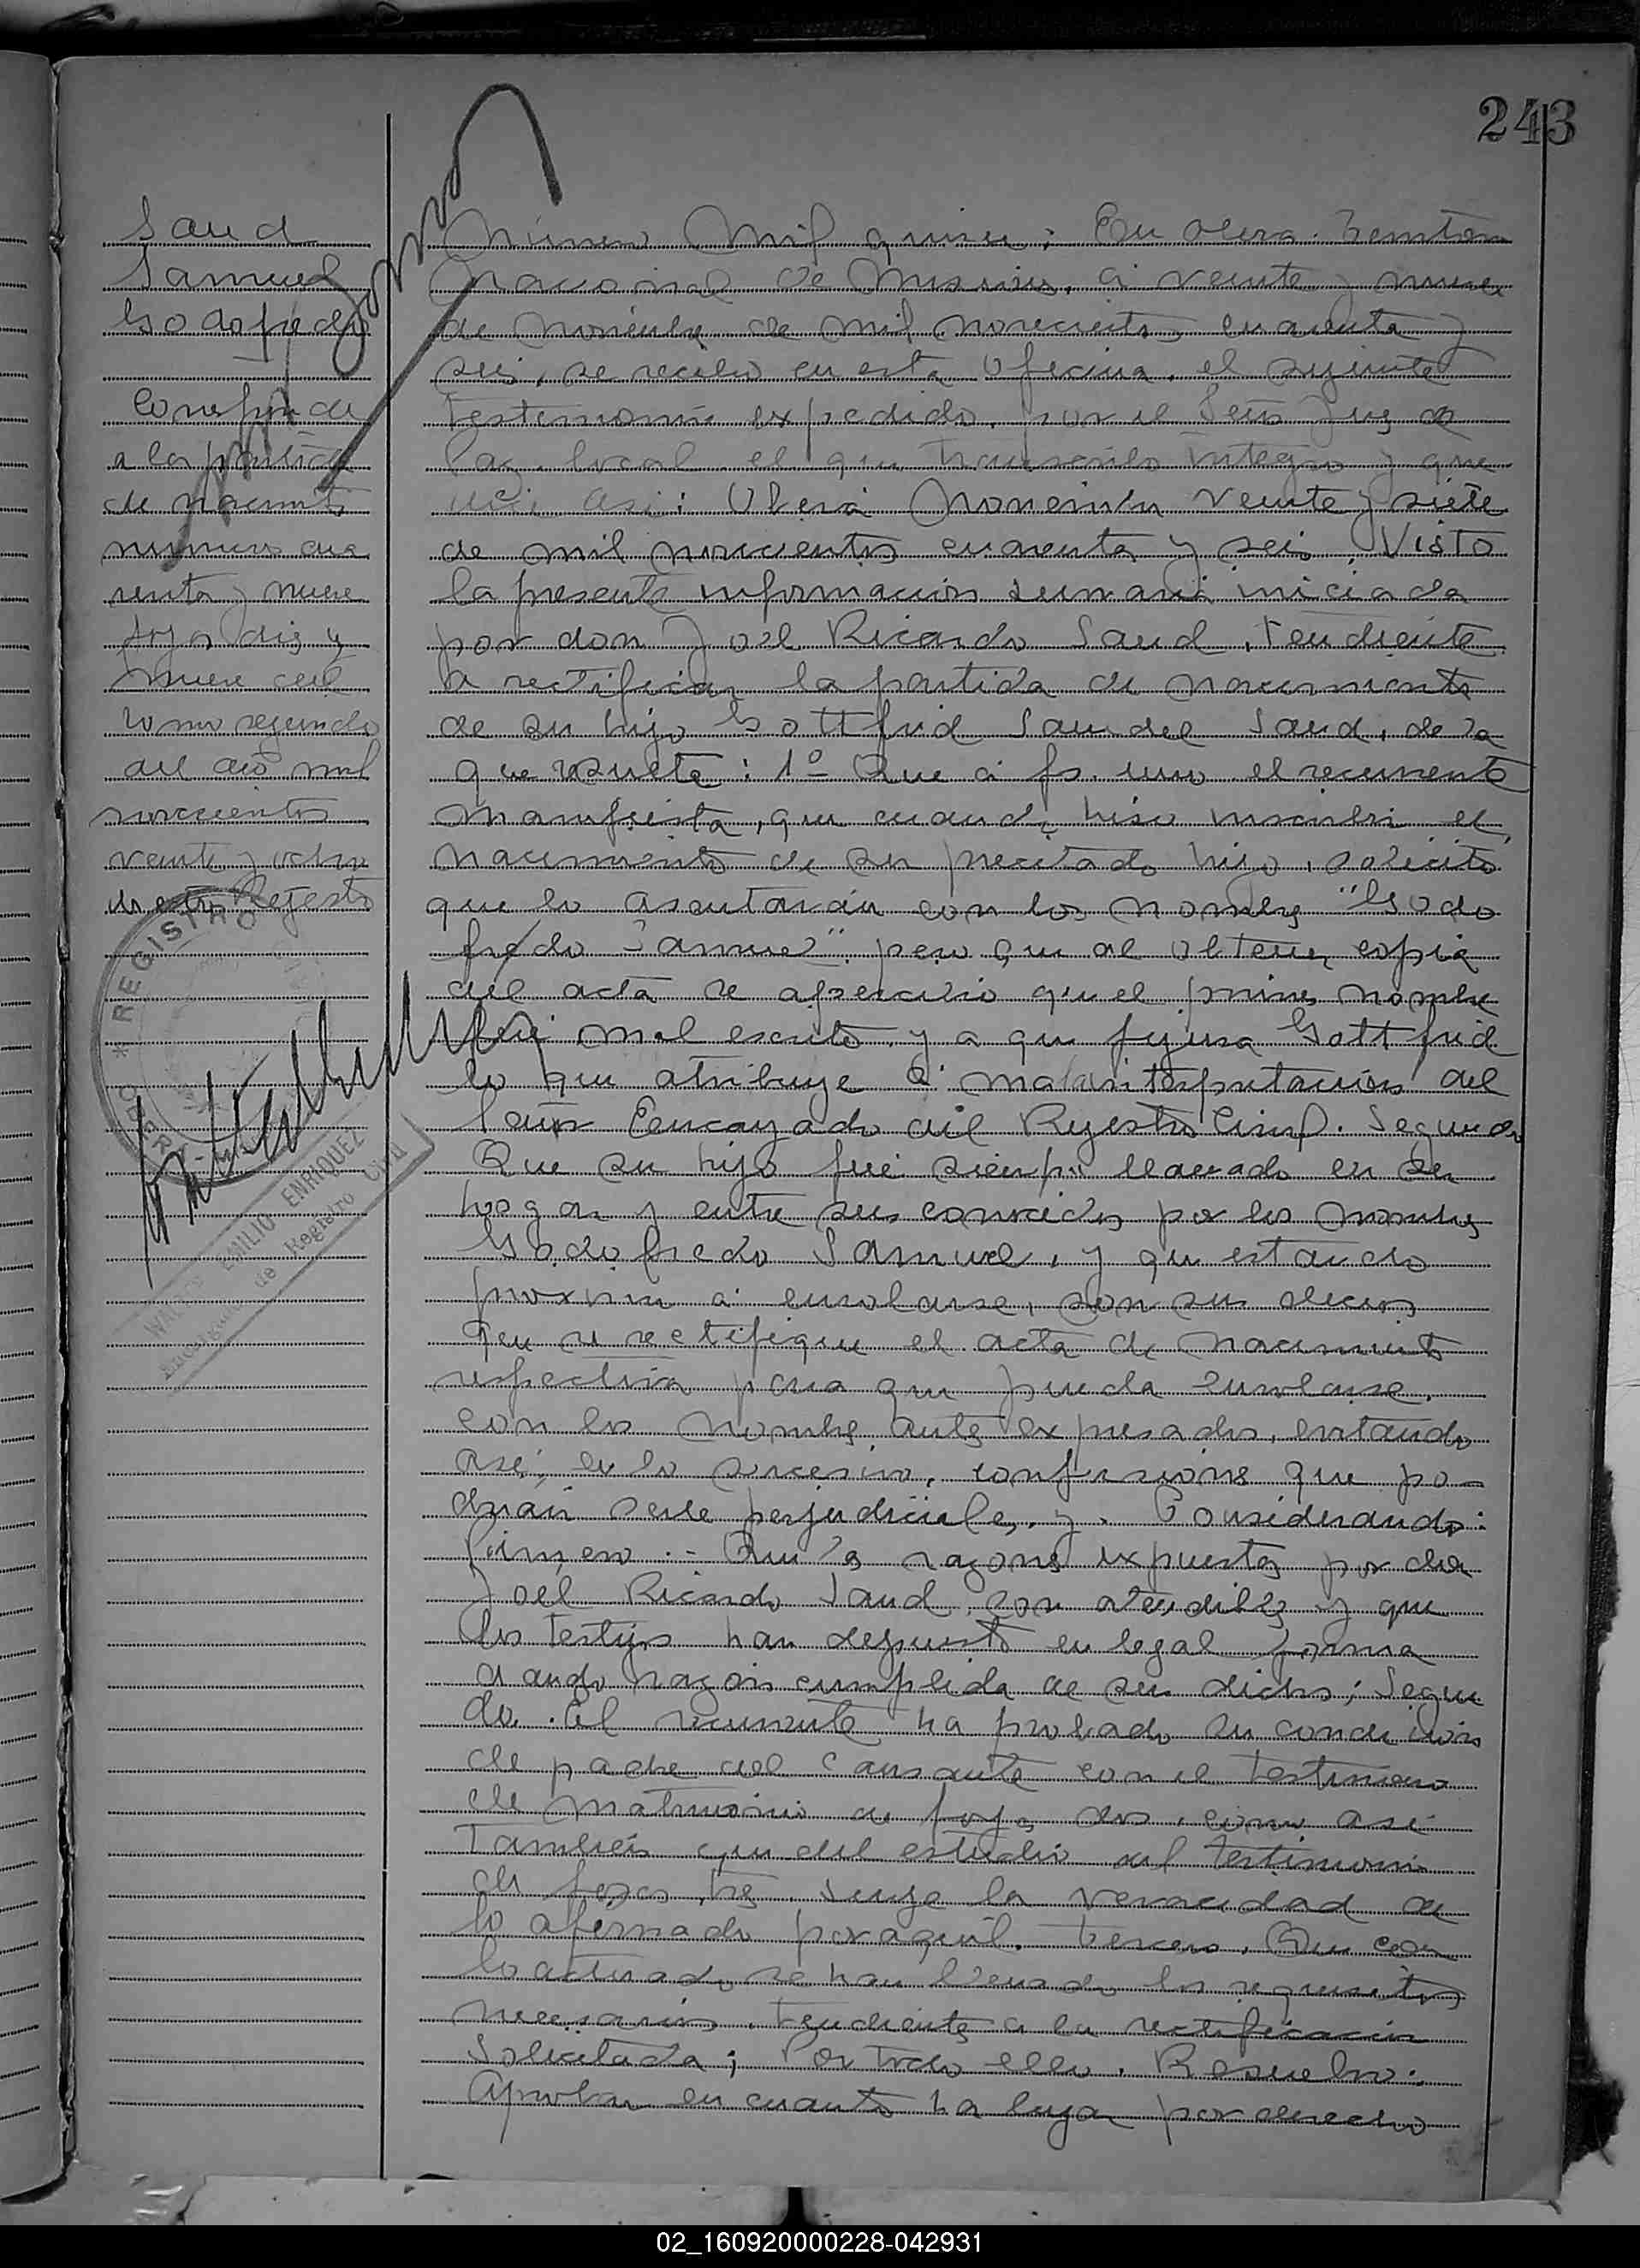 243
Sand
Samuel
Godofredo
Corresponde
a la partida
de nacimto
numero cua
renta y nueve
fojas diez y
nueve del
tomo segundo
del año mil
novecientos
veinte y ocho
de este Registro
REGISTRO
OBERA
EMILIO ENRIQUEZ
Encargado de Registro Civil
Número Mil quince: En Obera. Territorio
Nacional de Misiones, a veinte y nueve
de Noviembre de mil novecientos cuarenta y
seis, se recibió en esta Oficina, el siguiente
testimonio expedido, por el Señor Juez de
Paz local el que transcribo integro y que
dice asi: Oberá Noviembre veinte y siete
de mil novecientos cuarenta y seis, Visto
la presente informacion sumaria iniciada
por don Joel Ricardo Sand, tendiente
a rectificar la partida de nacimiento
de su hijo Gottfrid Samuel Sand, de la
que resulta: 1º Que a fs. uno el recurrente
manifiesta, que cuando hiso inscribir el
nacimiento de su precitado hijo, solicitó
que lo asentarán con los nombres "Godo
fredo Samuel" pero que al obtener copia
del acta se apercibio que el primer nombre
fué mal escrito, ya que figura Gottfrid
lo que atribuye a mala interpretación del
Señor Encargado del Registro Civil. Segundo
Que su hijo fué siempre llamado en su
hogar y entre sus conocidos por los nombres
Godofredo Samuel, y que estando
proximo a enrolarse, son sus deseos
que se rectifique el acta de nacimiento
respectiva para que pueda enrolarse,
con los nombres antes expresados, evitando
asi, en lo sucesivo, confusiones que po-
drián serle perjudiciales, y. Considerando:
Primero.- Que las razones expuestas por don
Joel Ricardo Sand, son atendibles y que
los testigos han depuesto en legal forma
dando razon cumplida de sus dichos; Segun
do. El recurrente ha probado su condicion
de padre del causante con el testimonio
de matrimonio de fojas dos, como asi
también que del estudio del testimonio
de fojas tres surge la veracidad de
lo afirmado por aquél. Tercero. Que con
lo actuado se han llenado los requisitos
necesarios tendientes a la rectificacion
solicitada; Por todo ello, Resuelvo:
Aprobar en cuanto ha lugar por derecho
02_160920000228-042931